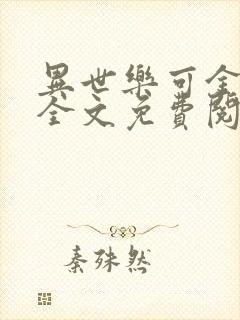 異世樂可全
全文免費閱
秦殊然